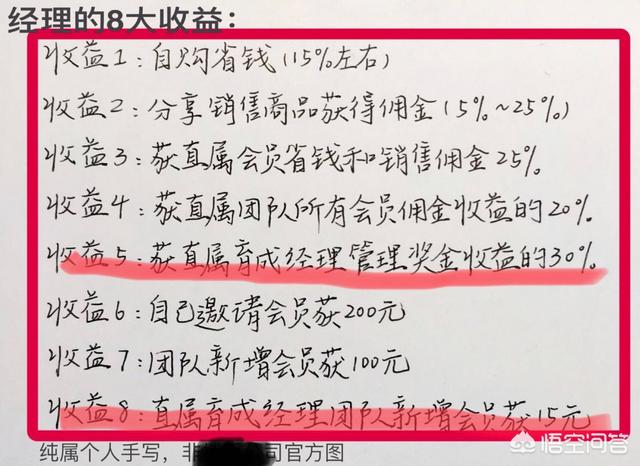 经理的8大收益：
收益1：自购省钱(15%左右)
收益2：分享销售商品获得佣金(5%~25%)
收益3：获直属会员省钱和销售佣金25%
收益4：获直属团队所有会员佣金收益的20%
收益5：获直属育成经理管理奖金收益的30%
收益6：自己邀请会员获200元
收益7：团队新增会员获100元
收益8：直属育成经理团队新增会员获15元
纯属个人手写，非司官方图
悟空问答